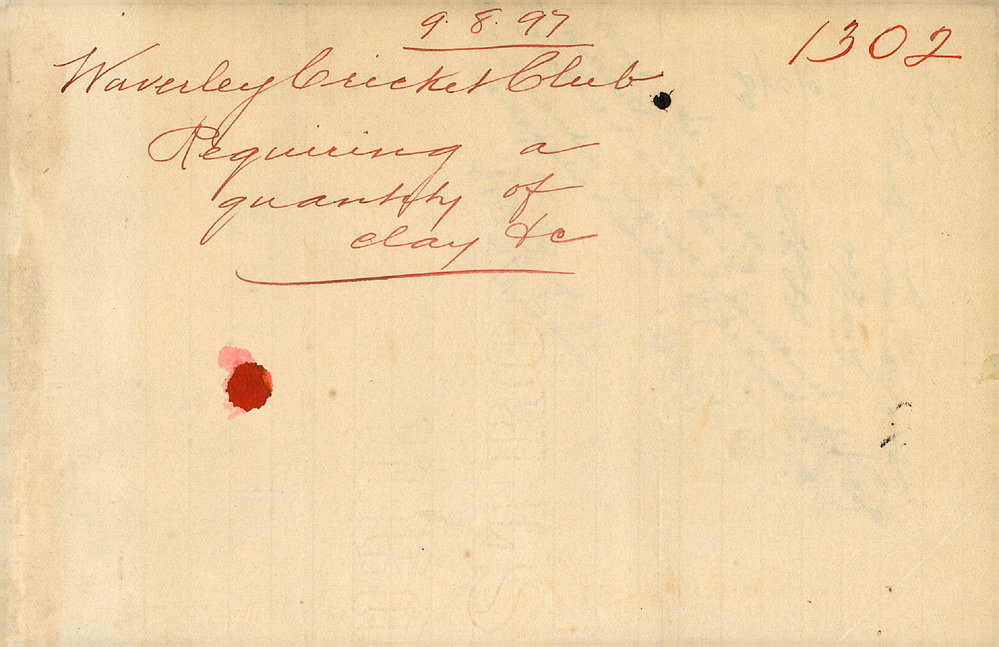 9.8.97
1302
Waverley Cricket Club
Requiring a
quantity of
clay &c